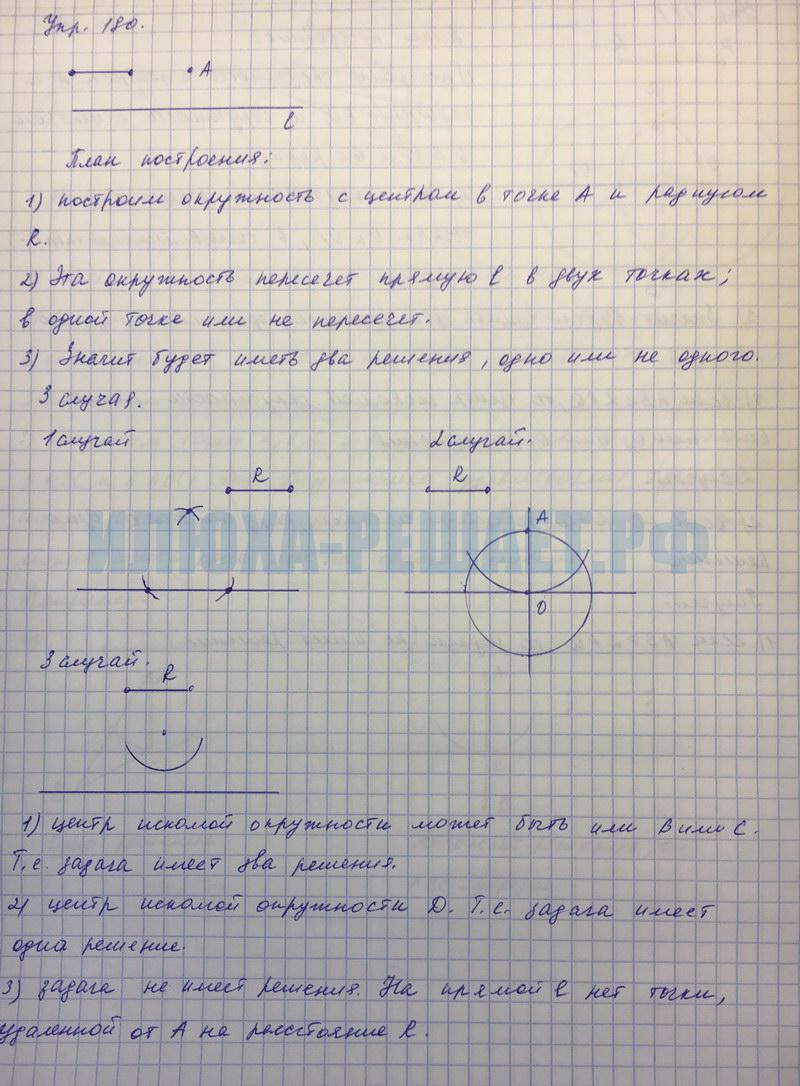 Упр. 180.
A
l
План построения:
1) построим окружность с центром в точке А и радиусом
R.
2) Эта окружность пересечет прямую l в двух точках;
в одной точке или не пересечет.
3) Значит будет иметь два решения, одно или не одного.
3 случая.
1 случай
2 случай.
R
R
A
ИЛЮХА-РЕШАЕТ.РФ
O
3 случай.
R
1) центр искомой окружности может быть или В или С.
Т.е. задача имеет два решения.
2) центр искомой окружности D. Т.е. задача имеет
одна решение.
3) задача не имеет решения. На прямой l нет точки,
удаленной от А на расстояние R.